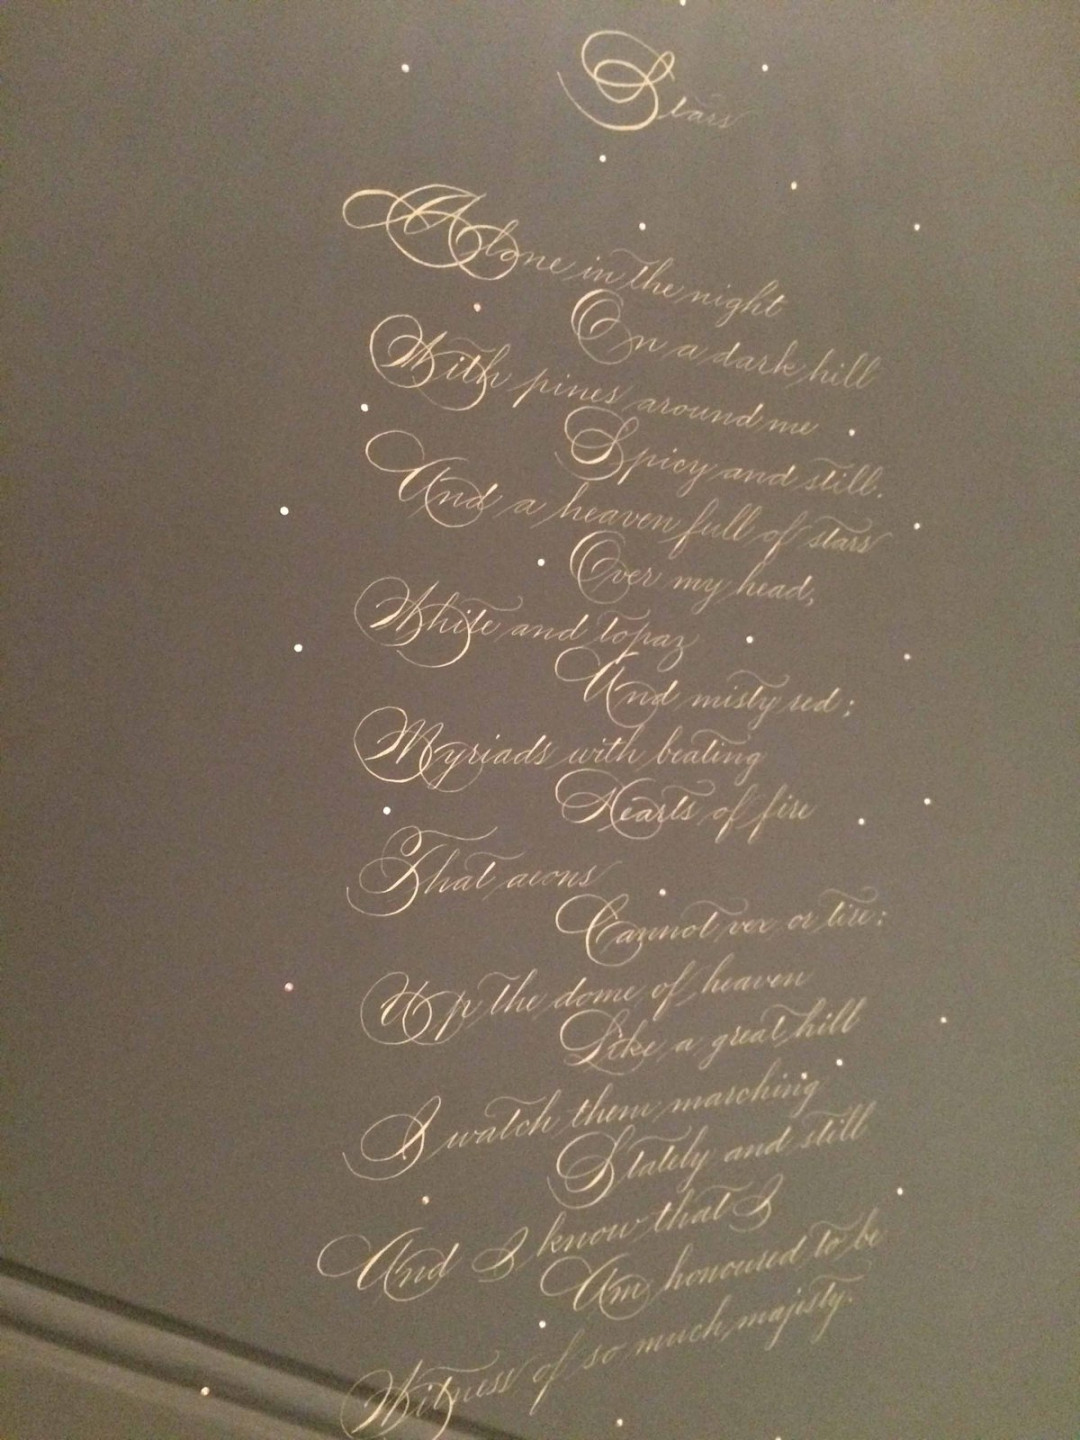 Stars
Alone in the night
On a dark hill
With pines around me
Spicy and still.
And a heaven full of stars
Over my head,
White and topaz
And misty red;
Myriads with beating
Hearts of fire
That aeons
Cannot vex or tire:
Up the dome of heaven
Like a great hill
I watch them marching
Stately and still
And I know that I
Am honoured to be
Witness of so much majesty.